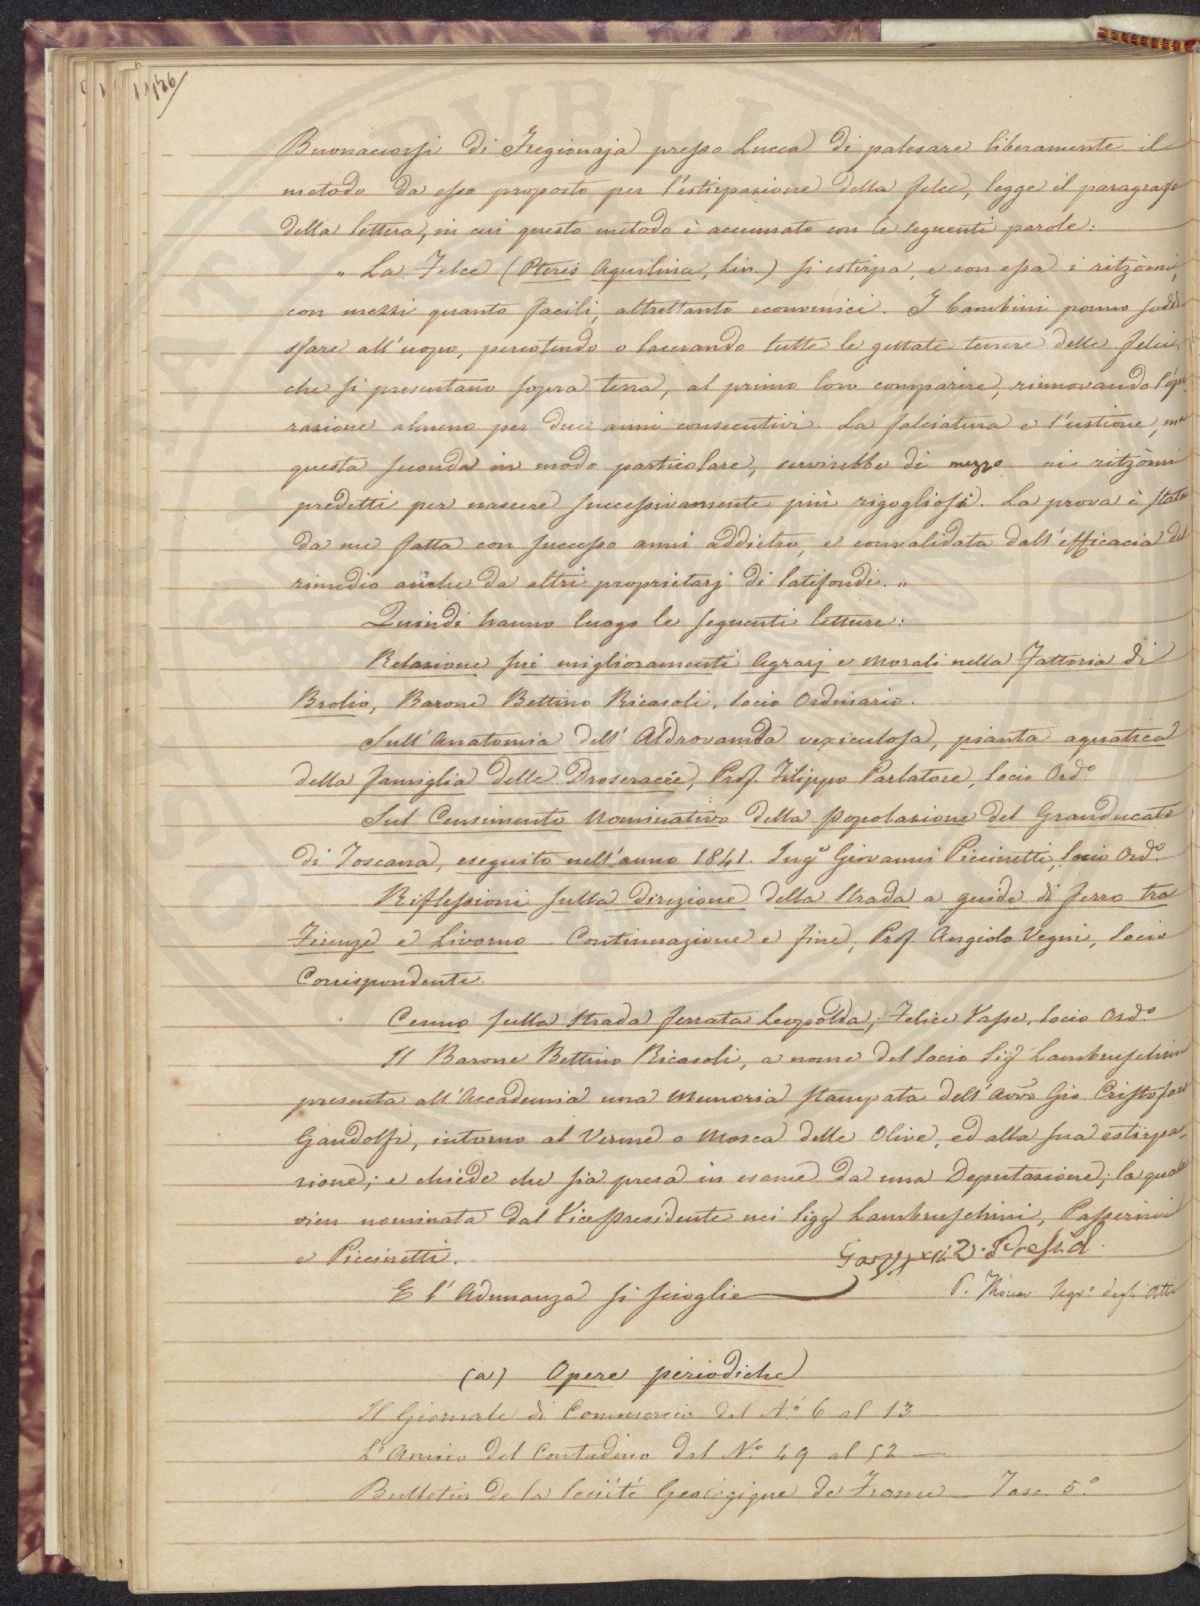 Buonaccorsi di Fregionaja presso Lucca di palesare liberamente il
metodo da esso proposto per l'estirpazione della felce, legge il paragrafo
della lettera, in cui questo metodo è accennato con le seguenti parole:
„ La Felce (Pteris Aquilina, Lin.) si estirpa, e con essa i ritzòmi,
con mezzi quanto facili, altrettanto economici. I bambini ponno soddi
sfare all'uopo, percotendo o lacerando tutte le gettate tenere delle felci,
che si presentano sopra terra, al primo loro comparire, rinnovando l'ope
razione almeno per due anni consecutivi. La falciatura e l'ustione, ma
questa seconda in modo particolare, servirebbe di mezzo ai ritzòmi
predetti per nascere successivamente più rigogliosi. La prova è stata
da me fatta con successo anni addietro, e convalidata dall'efficacia del
rimedio anche da altri proprietarj di latifondi. „
Quindi hanno luogo le seguenti letture:
Relazione sui miglioramenti Agrarj e Morali nella Fattoria di
Brolio, Barone Bettino Ricasoli, Socio Ordinario.
Sull'Anatomia dell'Aldrovanda vexiculosa, pianta aquatica
della famiglia delle Droseracèe, Prof. Filippo Parlatore, Socio Ord.º
Sul Censimento Nominativo della popolazione del Granducato
di Toscana, eseguito nell'anno 1841. Ing.e Giovanni Piccinetti, Socio Ord.º
Riflessioni sulla direzione della Strada a guide di ferro tra
Firenze e Livorno - Continuazione e fine, Prof. Angiolo Vegni, Socio
Corrispondente.
Cenno sulla Strada ferrata Leopolda, Felice Vasse, Socio Ord.º
Il Barone Bettino Ricasoli, a nome del Socio Sig.r Lambruschini
presenta all'Accademia una Memoria stampata dell'Avvo Gio. Cristofaro
Gandolfi, intorno al Verme o Mosca delle Olive, ed alla sua estirpa-
zione; e chiede che sia presa in esame da una Deputazione; la quale
vien nominata dal Vice Presidente nei Sigg Lambruschini, Passerini
e Piccinetti.
V. Presid.
E l'Adunanza si scioglie
P. Segr.º degli Atti
(a) Opere periodiche
Il Giornale di Commercio dal N.º 6 al 13
L'Amico del Contadino dal N.º 49 al 52
Bulletin de la Société Géologique de France - Fasc. 5.º